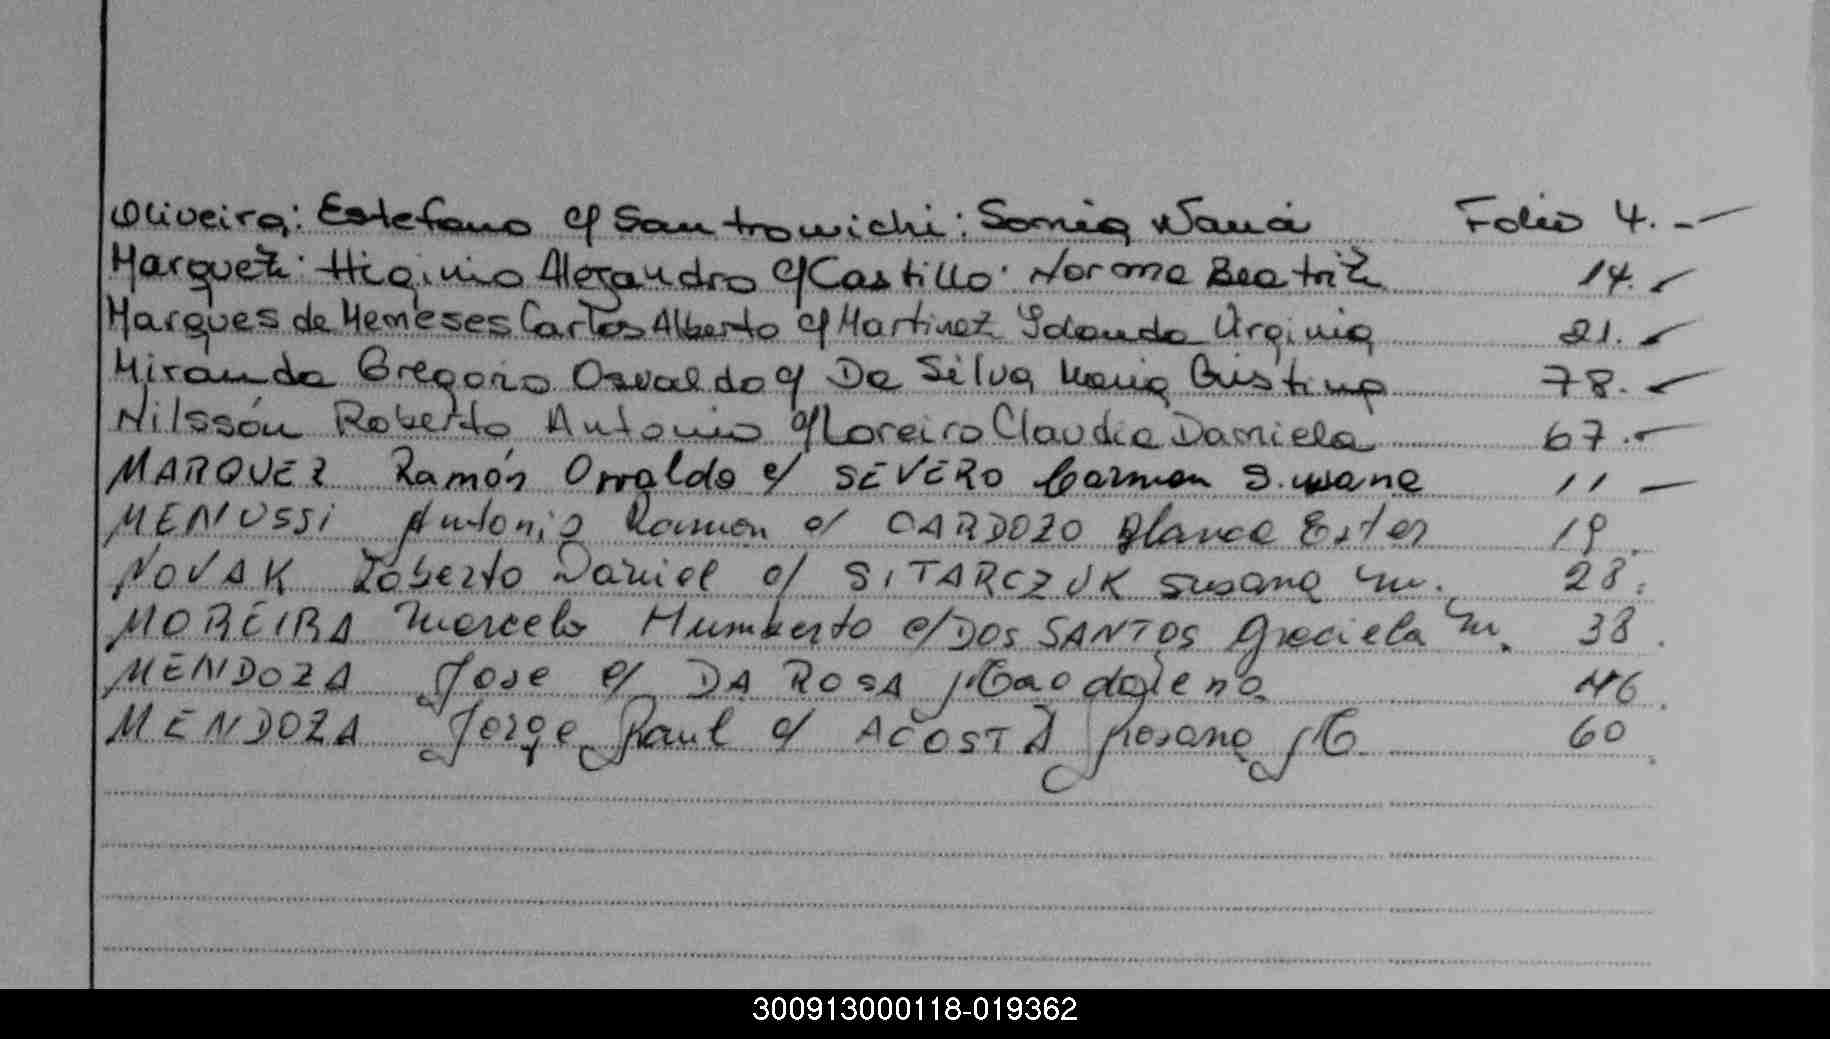 Oliveira: Estefano c/ Santrowichi: Sonia Folio 4.-
Marquez: Higinio Alejandro c/ Castillo: Norma Beatriz 14.
Marques de Meneses Carlos Alberto c/ Martinez Yolanda Virginia 21.
Miranda Gregorio Osvaldo c/ Da Silva Maria Cristina 78.
Nilssón Roberto Antonio c/ Loreiro Claudia Daniela 67.
MARQUEZ Ramón Osvaldo c/ SEVERO Carmen Susana 11
MENUSSI Antonio Ramon c/ CARDOZO Blanca Ester 19.
NOVAK Roberto Daniel c/ SITARCZUK Susana M. 28.
MOREIRA Marcelo Humberto c/ DOS SANTOS Graciela M. 38.
MENDOZA Jose c/ DA ROSA Magdalena 46.
MENDOZA Jorge Raul c/ ACOSTA Rosana M. 60.
300913000118-019362